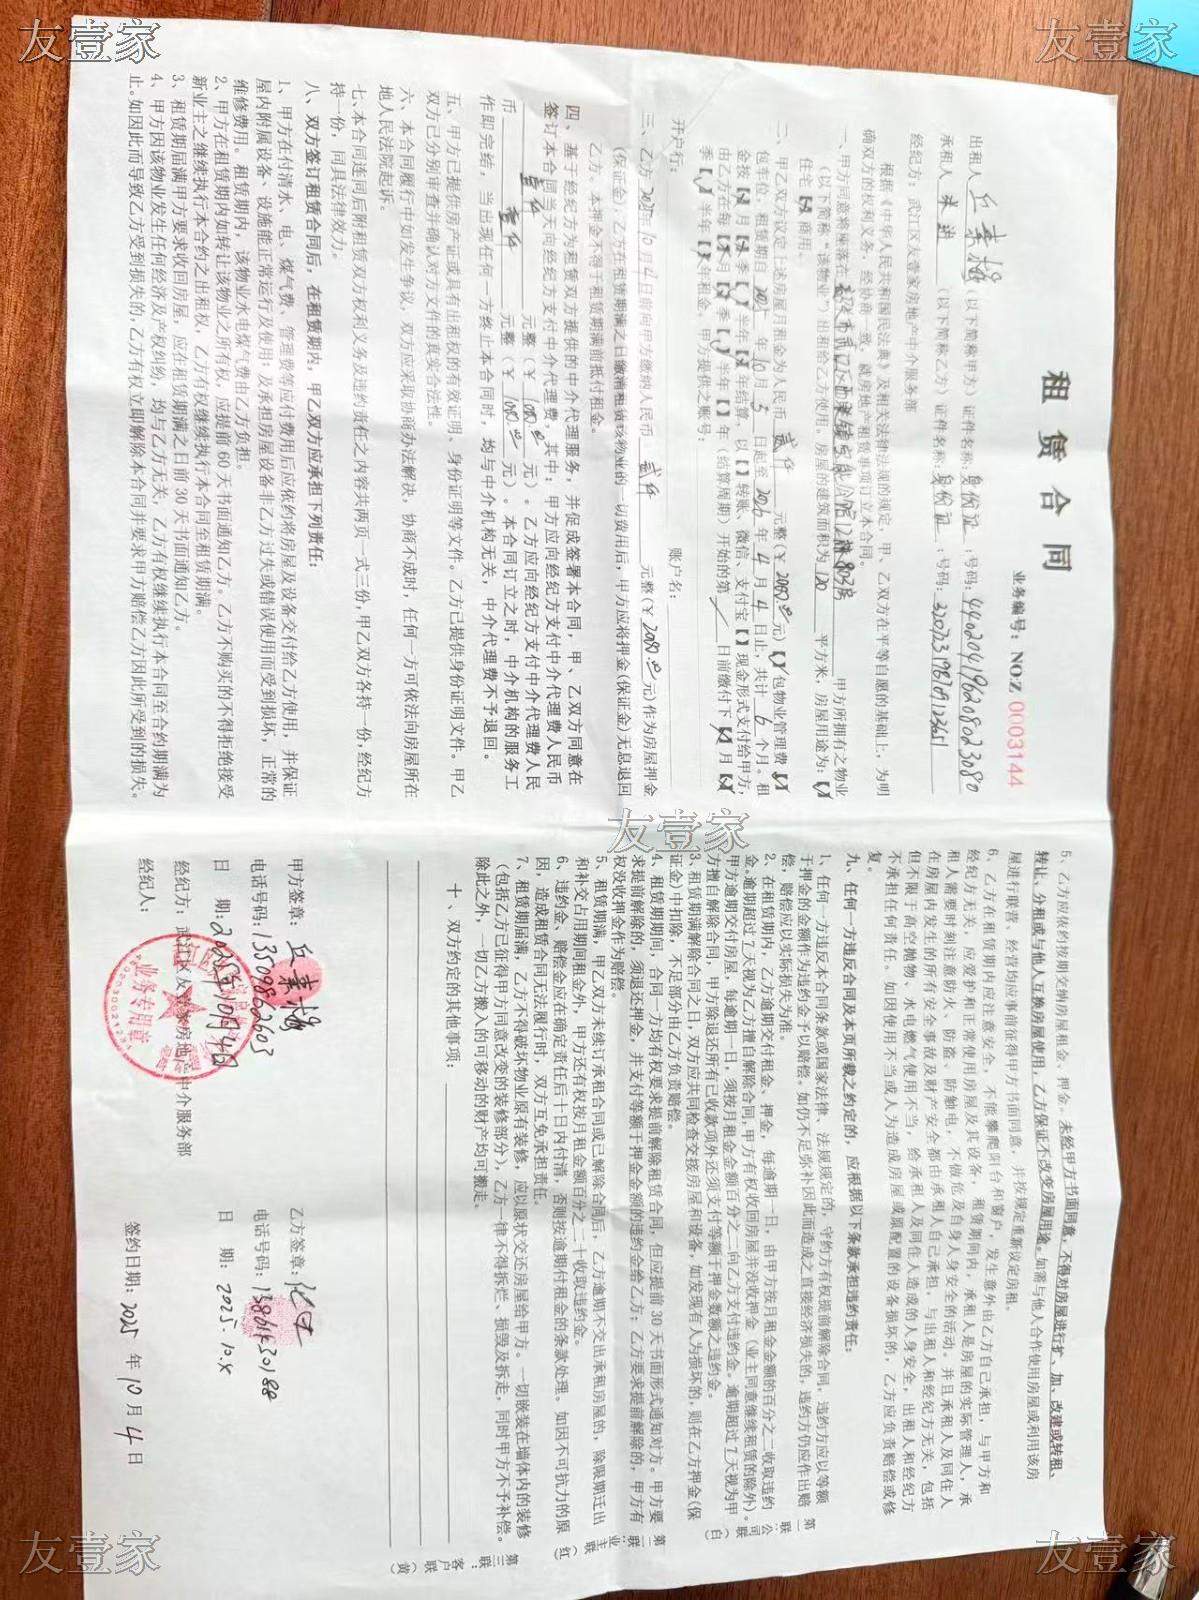 友壹家
友壹家
租赁合同
业务编号：NO:Z 0003144
出租人
（以下简称甲方）证件名称：身份证：号码：440204196208023080
承租人
（以下简称乙方）证件名称：身份证：号码：
经纪方：武江区友壹家房地产中介服务部
根据《中华人民共和国民法典》及相关法律法规的规定，甲、乙双方在平等自愿的基础上，为明
确双方的权利义务，经协商一致，就房地产租赁事项订立本合同。
一、甲方同意将座落在
甲方所拥有之物业
（以下简称“该物业”）出租给乙方使用。房屋的建筑面积为 120 平方米；房屋用途为：
住宅 商用。
二、甲乙双方议定上述房屋月租金为人民币 贰仟 元整（￥ 元）包物业管理费
包车位，租赁期自 2025 年 10 月 5 日起至 2026 年 4 月 4 日止，共计 6 个月。租
金按 月 季 半年 年结算，以【】转账、微信、支付宝【】现金形式支付给甲方。
由乙方在每 月 季 半年【】年（结算周期）开始的第 日前缴付下 月
季 半年 年租金。甲方提供之账号：
开户行：
账户名：
三、乙方 2025年10月4日前向甲方缴纳人民币 贰仟 元整（￥ 元）作为房屋押金
（保证金）；乙方在租赁期满之日缴清租赁该物业的一切费用后，甲方应将押金（保证金）无息退回
乙方。本押金不得于租赁期满前抵付租金。
四、基于经纪方为租赁双方提供的中介代理服务，并促成签署本合同，甲、乙双方同意在
签订本合同当天向经纪方支付中介代理费，其中：甲方应向经纪方支付中介代理费人民币
壹仟 元整（￥ 元）。乙方应向经纪方支付中介代理费人民
币 壹仟 元整（￥ 元）。本合同订立之时，中介机构的服务工
作即完结，当出现任何一方终止本合同时，均与中介机构无关，中介代理费不予退回。
五、甲方已提供房产证或具有出租权的有效证明、身份证明等文件。乙方已提供身份证明文件。甲乙
双方已分别审查并确认对方文件的真实合法性。
六、本合同履行中如发生争议，双方应采取协商办法解决，协商不成时，任何一方可依法向房屋所在
地人民法院起诉。
七、本合同连同后附租赁双方权利义务及违约责任之内容共两页一式三份，甲乙双方各持一份，经纪方
持一份，同具法律效力。
八、双方签订租赁合同后，在租赁期内，甲乙双方应承担下列责任：
1、甲方在付清水、电、煤气费、管理费等应付费用后应依约将房屋及设备交付给乙方使用，并保证
屋内附属设备、设施能正常运行及使用；及承担房屋设备非乙方过失或错误使用而受到损坏，正常的
维修费用。租赁期内，该物业水电煤气费由乙方负担。
2、甲方在租赁期内如转让该物业之所有权，应提前60天书面通知乙方。乙方不购买的不得拒绝接受
新业主之继续执行本合约之出租权，乙方有权继续执行本合同至租赁期满。
3、租赁期届满甲方要求收回房屋，应在租赁期满之日前30天书面通知乙方。
4、甲方因该物业发生任何经济及产权纠纷，均与乙方无关，乙方有权继续执行本合同至合约期满为
止。如因此而导致乙方受到损失的，乙方有权立即解除本合同并要求甲方赔偿乙方因此所受到的损失。
友壹家
5、乙方应依约按期交纳房屋租金、押金。未经甲方书面同意，不得对房屋进行扩、加、改建或转租、
转让、分租或与他人互换房屋使用，乙方保证不改变房屋用途。如需与他人合作使用房屋或利用该房
屋进行联营、经营均应事前征得甲方书面同意，并按规定重新议定房租。
6、乙方在租赁期内应注意安全，不能攀爬阳台和窗户，发生意外由乙方自己承担，与甲方和
经纪方无关，应爱护和正常使用房屋及其设备，租赁期间内，承租人是房屋的实际管理人，承
租人需要时刻注意防火、防盗、防触电，不做危及自身人身安全的活动。并且承租人及同住人
在房屋内发生的所有安全事故及财产安全都由承租人自己承担，与出租人和经纪方无关，包括
但不限于高空抛物、水电燃气使用不当，给承租人及同住人造成的人身安全，出租人和经纪方
不承担任何责任。如因使用不当或人为造成房屋或原配置的设备损坏的，乙方应负责赔偿或修
复。
九、任何一方违反合同及本页所载之约定的，应根据以下条款承担违约责任：
1、任何一方违反本合同条款或国家法律、法规规定的，守约方有权提前解除合同，违约方应以等额
于押金的金额作为违约金予以赔偿。如仍不足弥补因此而造成之直接经济损失的，违约方仍应作出赔
偿，赔偿应以实际损失为准。
2、在租赁期内，乙方逾期交付租金、押金，每逾期一日，由甲方按月租金金额的百分之二收取违约
金。逾期超过7天视为乙方擅自解除合同，甲方有权收回房屋并没收押金（业主同意继续租赁的除外）。
甲方逾期交付房屋，每逾期一日，须按月租金金额百分之二向乙方支付违约金。逾期超过7天视为甲
方擅自解除合同，甲方除退还所有已收款项外还须支付等额于押金数额之违约金。
3、租赁期满解除合同之日，双方应共同检查交接房屋和设备，如发现有人为损坏的，则在乙方押金（保
证金）中扣除，不足部分由乙方负责赔偿。
4、租赁期期间，合同一方均有权要求提前解除租赁合同，但应提前30天书面形式通知对方。甲方要
求提前解除的，须退还押金，并支付等额于押金金额的违约金给乙方；乙方要求提前解除的，甲方有
权没收押金作为赔偿。
5、租赁期满，甲乙双方未续订承租合同或已解除合同后，乙方逾期不交出承租房屋的，除限期迁出
和补交占用期间租金外，甲方还有权按月租金额百分之二十收取违约金。
6、违约金、赔偿金应在确定责任后十日内付清，否则按逾期付租金的条款处理。如因不可抗力的原
因，造成租赁合同无法履行时，双方互免承担责任。
7、租赁期届满，乙方不得破坏物业原有装修，应以原状交还房屋给甲方。一切嵌装在墙体内的装修
（包括乙方已征得甲方同意改变的装修部分），乙方一律不得拆烂、损毁及拆走，同时甲方不予补偿。
除此之外，一切乙方搬入的可移动的财产均可搬走。
十、双方约定的其他事项：
第一联：公司联（白）
第二联：业主联（红）
第三联：客户联（黄）
甲方签章：
电话号码：13509862603
日 期：2025年10月4日
经纪方：武江区友壹家房地产中介服务部
经纪人：
业务专用章
乙方签章：
电话号码：
日 期：2025.10.
签约日期：2025 年 10 月 4 日
友壹家
友壹家